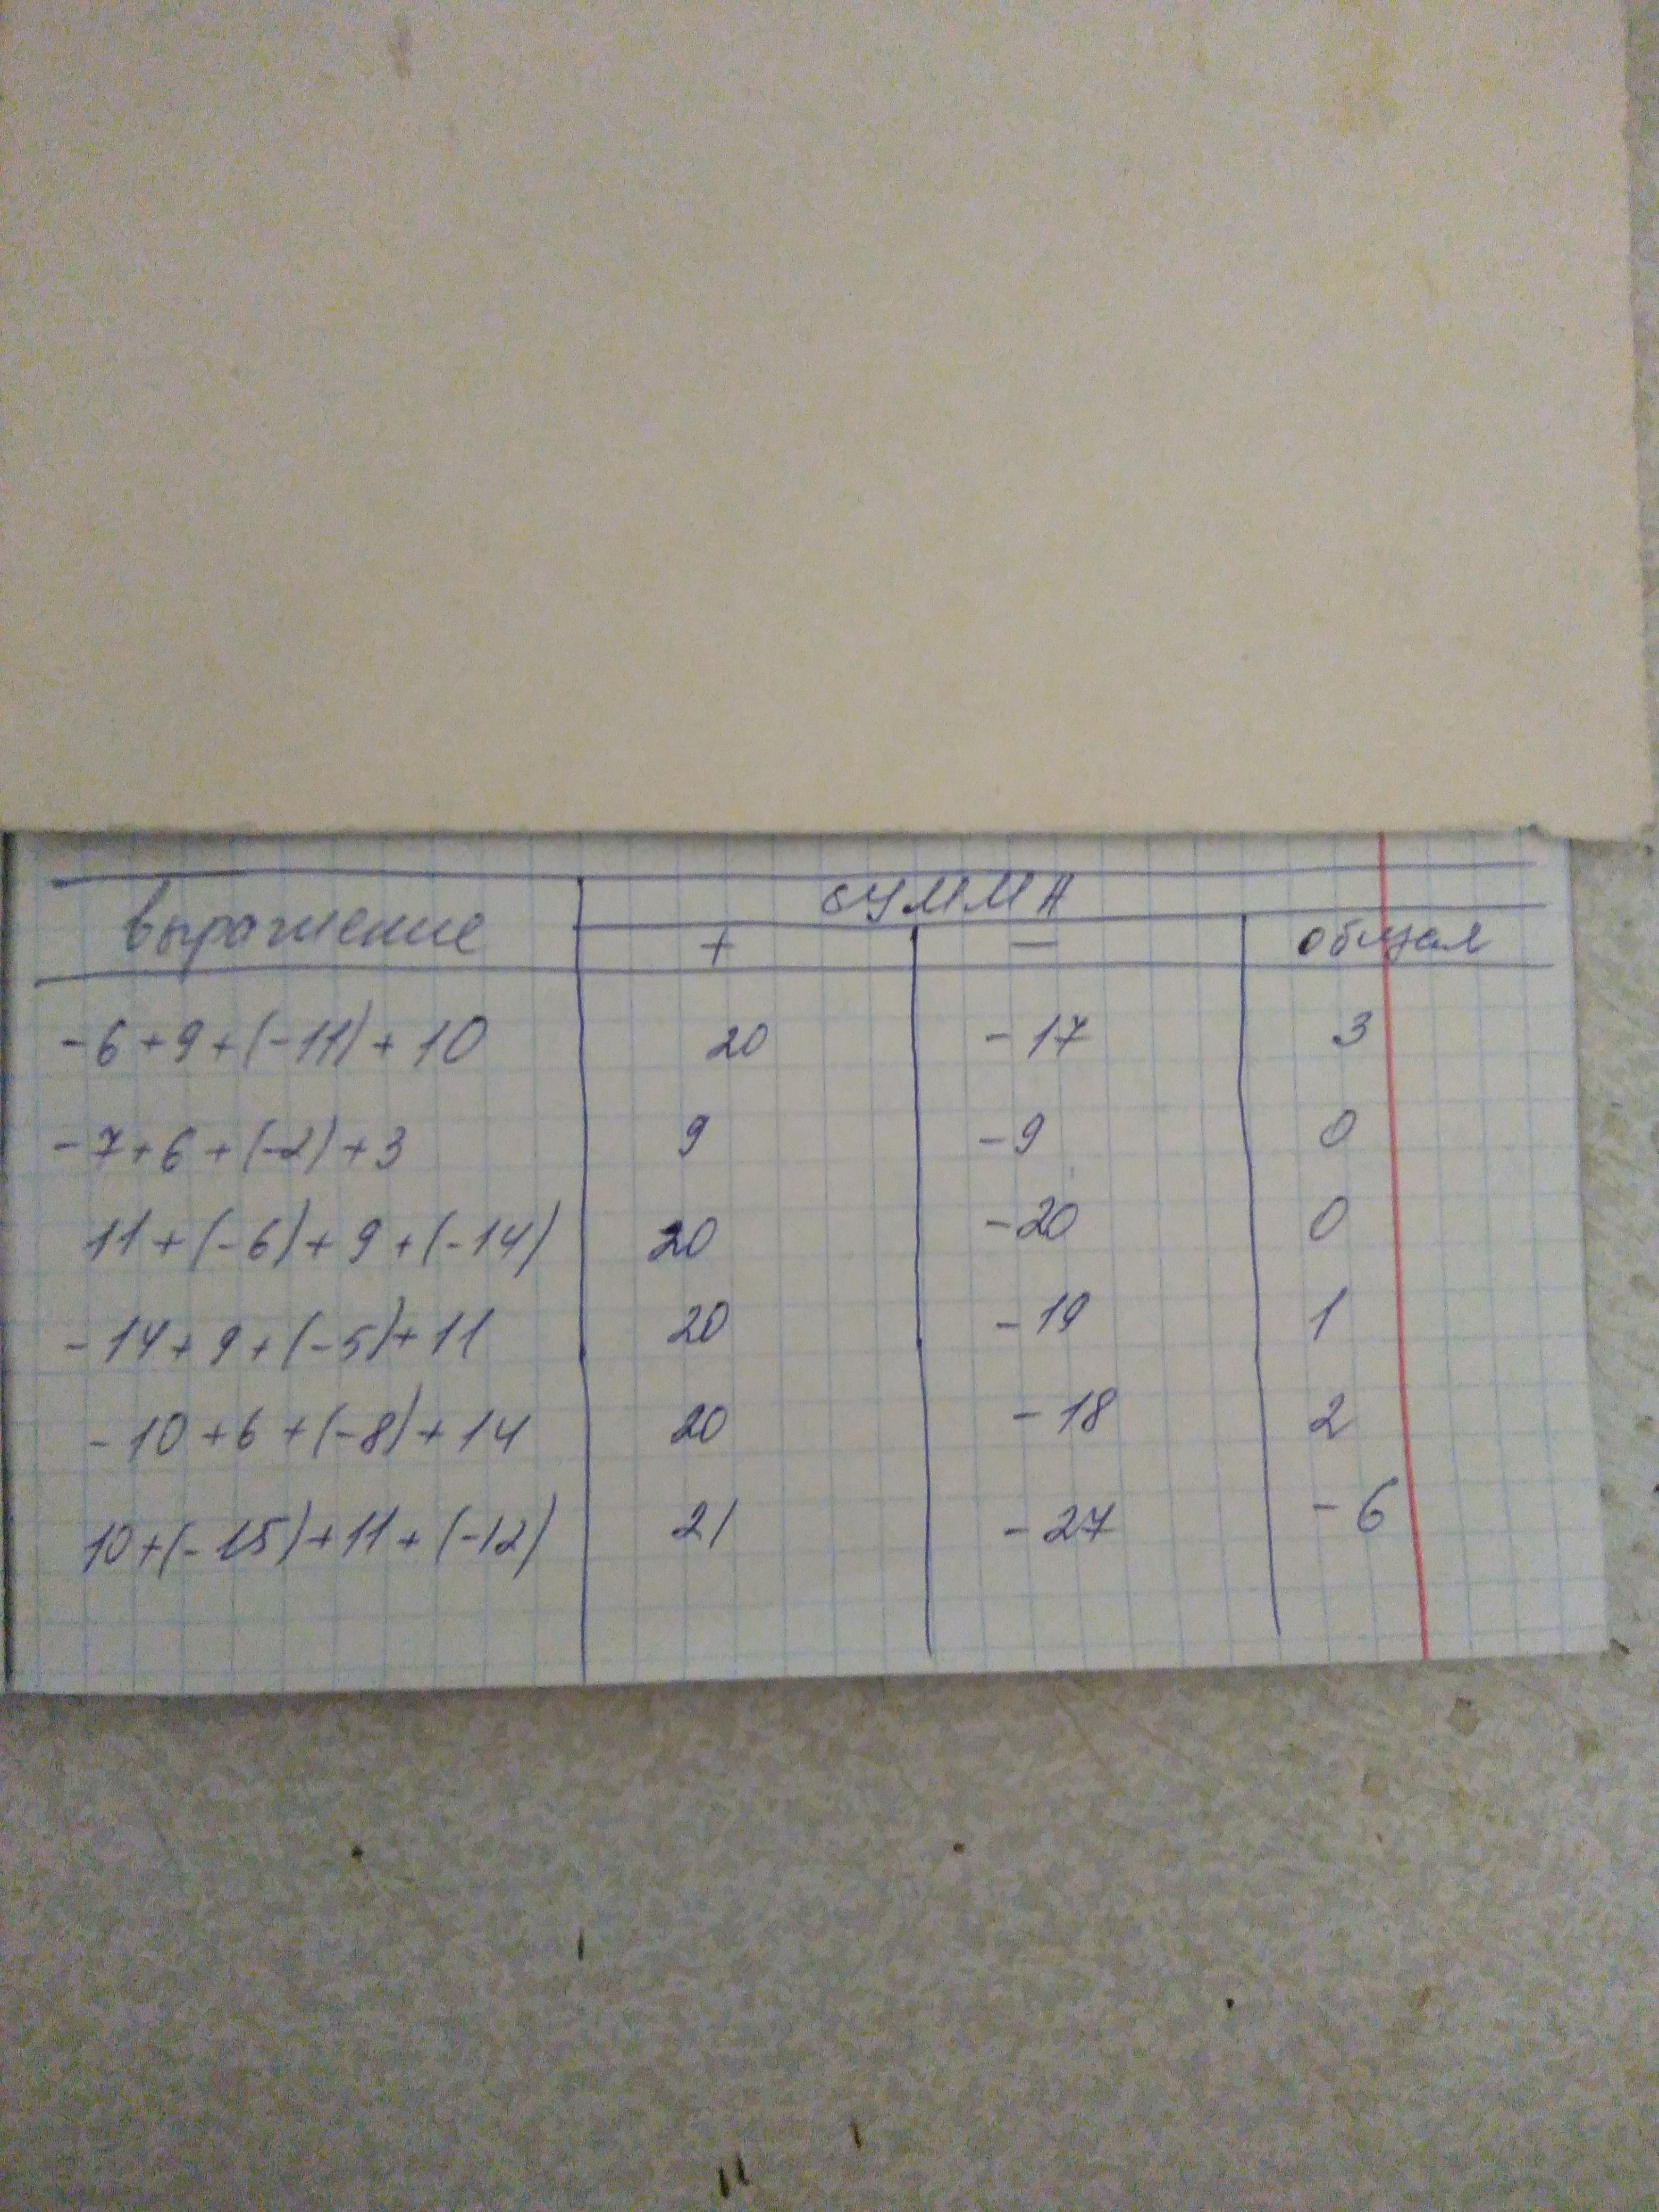 выражение СУММА
+ - общая
-6+9+(-11)+10 20 -17 3
-7+6+(-2)+3 9 -9 0
11+(-6)+9+(-14) 20 -20 0
-14+9+(-5)+11 20 -19 1
-10+6+(-8)+14 20 -18 2
10+(-15)+11+(-12) 21 -27 -6